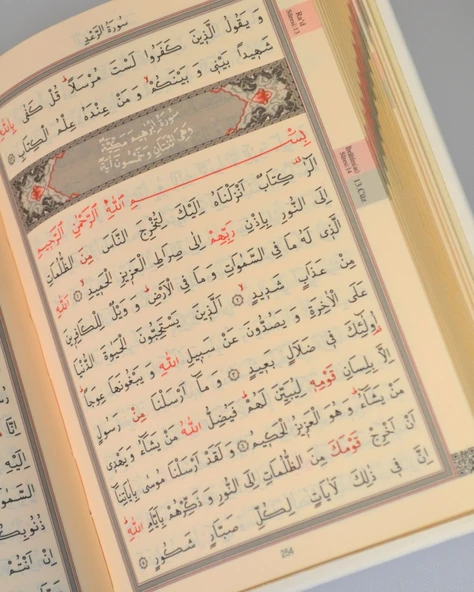 سُورَةُ الرَّعْدِ
وَ يَقُولُ الَّذِينَ كَفَرُوا لَسْتَ مُرْسَلًا قُلْ كَفٰى بِاللّٰهِ
شَهِيدًا بَيْنِي وَ بَيْنَكُمْ وَ مَنْ عِنْدَهُ عِلْمُ الْكِتَابِ
سُورَةُ اِبْرٰهِيمَ مَكِّيَّةٌ
وَهِيَ اثْنَتَانِ وَخَمْسُونَ آيَةً
بِسْمِ اللّٰهِ الرَّحْمٰنِ الرَّحِيمِ
الٓرٰ كِتَابٌ اَنْزَلْنَاهُ اِلَيْكَ لِتُخْرِجَ النَّاسَ مِنَ الظُّلُمَاتِ
اِلَى النُّورِ بِاِذْنِ رَبِّهِمْ اِلٰى صِرَاطِ الْعَزِيزِ الْحَمِيدِ ١ اَللّٰهِ
الَّذِي لَهُ مَا فِي السَّمٰوَاتِ وَ مَا فِي الْاَرْضِ وَ وَيْلٌ لِلْكَافِرِينَ
مِنْ عَذَابٍ شَدِيدٍ ٢ اَلَّذِينَ يَسْتَحِبُّونَ الْحَيٰوةَ الدُّنْيَا
عَلَى الْاٰخِرَةِ وَ يَصُدُّونَ عَنْ سَبِيلِ اللّٰهِ وَ يَبْغُونَهَا عِوَجًا
اُولٰٓئِكَ فِي ضَلَالٍ بَعِيدٍ ٣ وَ مَا اَرْسَلْنَا مِنْ رَسُولٍ
اِلَّا بِلِسَانِ قَوْمِهِ لِيُبَيِّنَ لَهُمْ فَيُضِلُّ اللّٰهُ مَنْ يَشَاءُ وَ يَهْدِي
مَنْ يَشَاءُ وَ هُوَ الْعَزِيزُ الْحَكِيمُ ٤ وَ لَقَدْ اَرْسَلْنَا مُوسٰى بِاٰيَاتِنَا
اَنْ اَخْرِجْ قَوْمَكَ مِنَ الظُّلُمَاتِ اِلَى النُّورِ وَ ذَكِّرْهُمْ بِاَيَّامِ اللّٰهِ
اِنَّ فِي ذٰلِكَ لَاٰيَاتٍ لِكُلِّ صَبَّارٍ شَكُورٍ ٥
254
Ra'd
Sûresi 13
İbrâhîm
Sûresi 14
13.Cüz